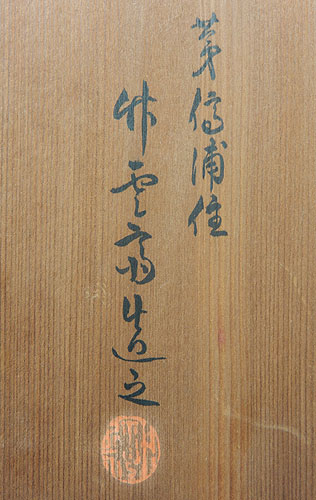 茅渟浦住
竹雲斎造之